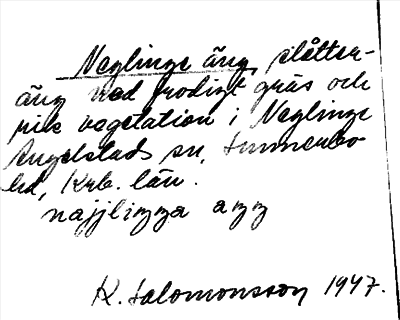 Neglinge äng, slåtter-
äng med frodigt gräs och
rik vegetation i Neglinge
Angelstads sn, Sunnerbo
hd, Krb. län.
najjlinga äng
K. Salomonsson 1947.